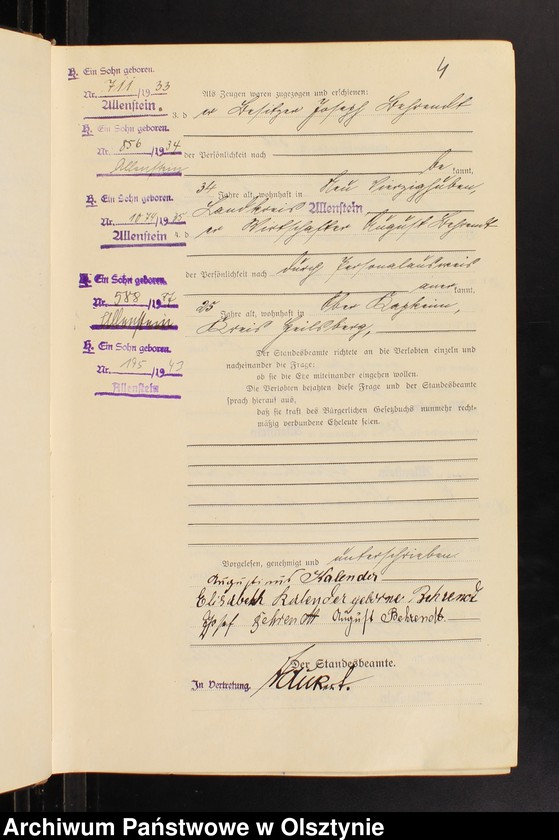 4
K. Ein Sohn geboren.
Nr. 711/1933
Allenstein.
K. Ein Sohn geboren.
Nr. 856/1934
Allenstein
K. Ein Sohn geboren.
Nr. 1074/1935
Allenstein
K. Ein Sohn geboren.
Nr. 588/1937
Allenstein
K. Ein Sohn geboren.
Nr. 195/1940
Allenstein
Als Zeugen waren zugezogen und erschienen:
3. der Besitzer Joseph Behrendt
der Persönlichkeit nach be kannt,
34 Jahre alt, wohnhaft in Neu Vierzighuben,
Landkreis Allenstein
4. der Wirtschafter August Behrendt
der Persönlichkeit nach durch Personalausweis
aner kannt,
25 Jahre alt, wohnhaft in Ober Kapkeim,
Kreis Heilsberg,
Der Standesbeamte richtete an die Verlobten einzeln und
nacheinander die Frage:
ob sie die Ehe miteinander eingehen wollen.
Die Verlobten bejahten diese Frage und der Standesbeamte
sprach hierauf aus,
daß sie kraft des Bürgerlichen Gesetzbuchs nunmehr recht-
mäßig verbundene Eheleute seien.
Vorgelesen, genehmigt und unterschrieben.
Augustinus Kalender
Elisabeth Kalender geborne Behrendt
Josef Behrendt August Behrendt.
Der Standesbeamte.
In Vertretung.
Archiwum Państwowe w Olsztynie